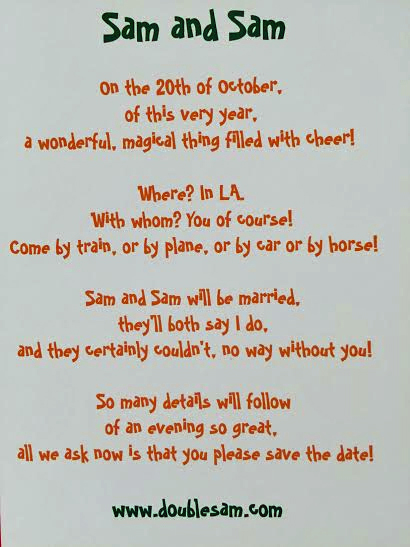 Sam and Sam
On the 20th of October,
of this very year,
a wonderful, magical thing filled with cheer!
Where? In L.A.
With whom? You of course!
Come by train, or by plane, or by car or by horse!
Sam and Sam will be married,
they'll both say I do,
and they certainly couldn't, no way without you!
So many details will follow
of an evening so great,
all we ask now is that you please save the date!
www.doublesam.com